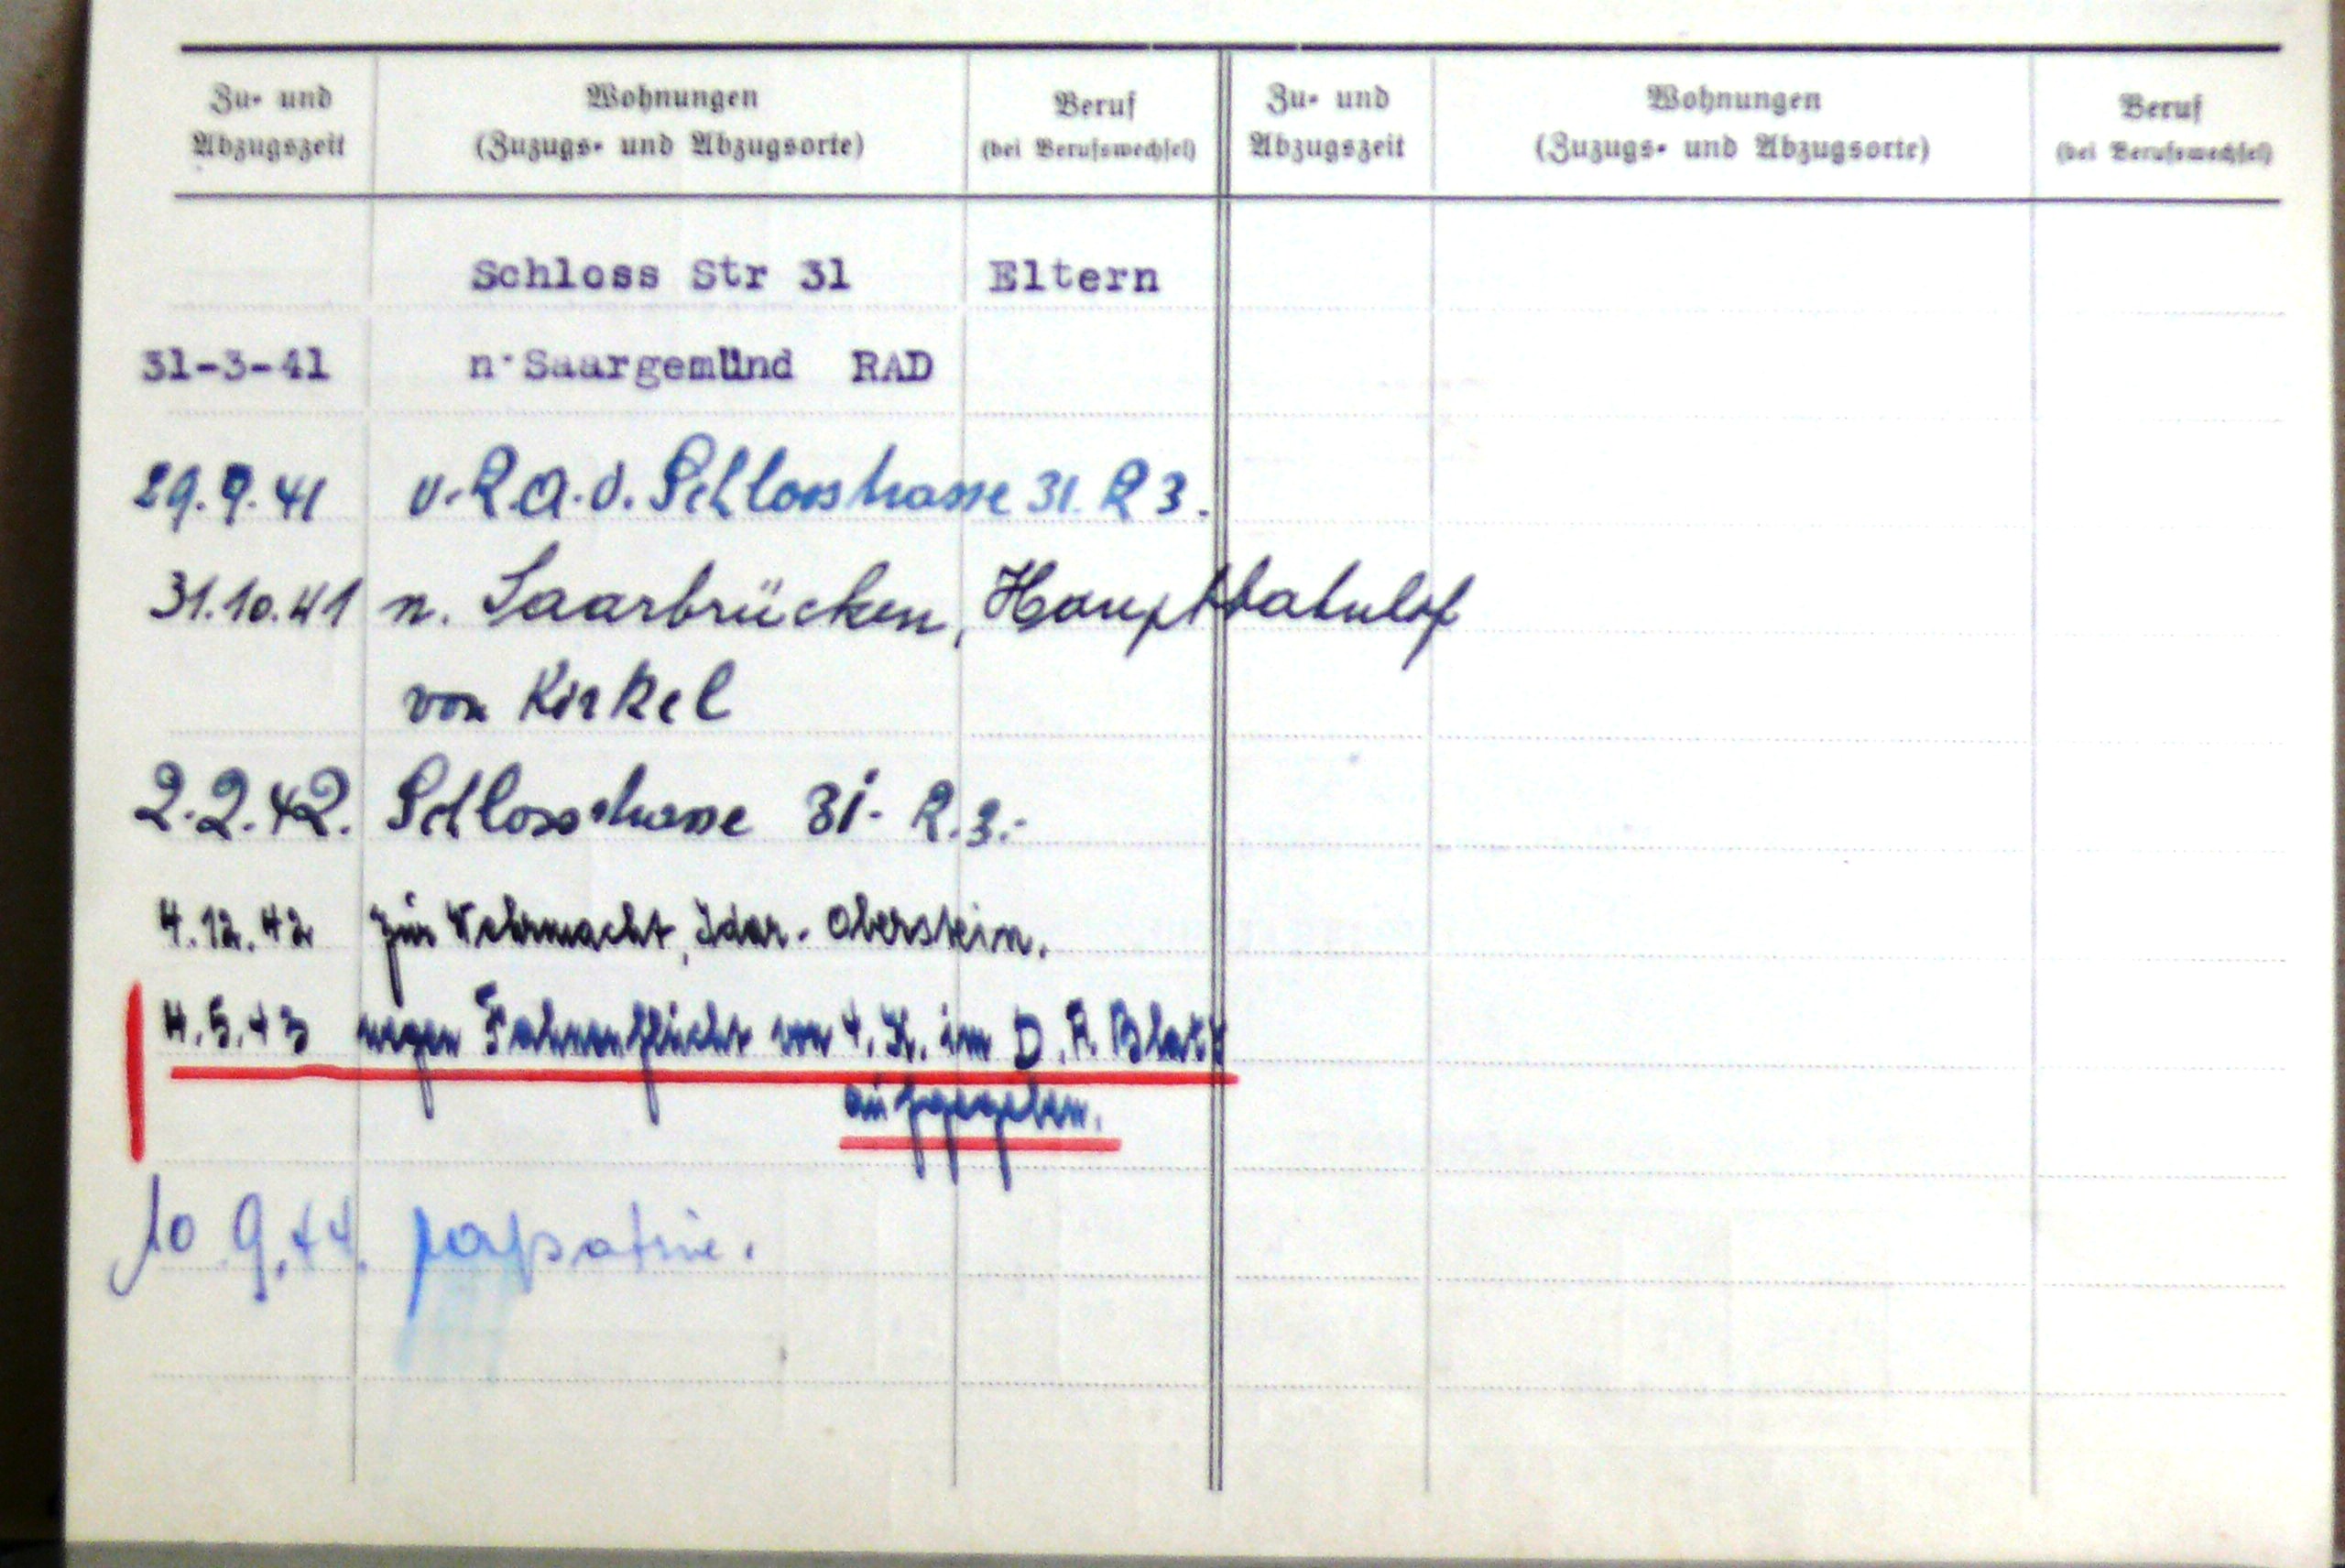 Zu- und
Abzugszeit
Wohnungen
(Zuzugs- und Abzugsorte)
Beruf
(bei Berufswechsel)
Zu- und
Abzugszeit
Wohnungen
(Zuzugs- und Abzugsorte)
Beruf
(bei Berufswechsel)
Schloss Str 31 Eltern
31-3-41 n·Saargemünd RAD
29.9.41 v. R.A.D. Schlosstrasse 31. R 3.
31.10.41 n. Saarbrücken, Hauptbahnhof
von Kirkel
2.2.42. Schlossstrasse 31- R.3.-
4.12.42 zur Wehrmacht, Idar-Oberstein.
4.5.43 wegen Fahnenflucht von 4. K. im D.K.Blatt
aufgegeben.
10.9.44.